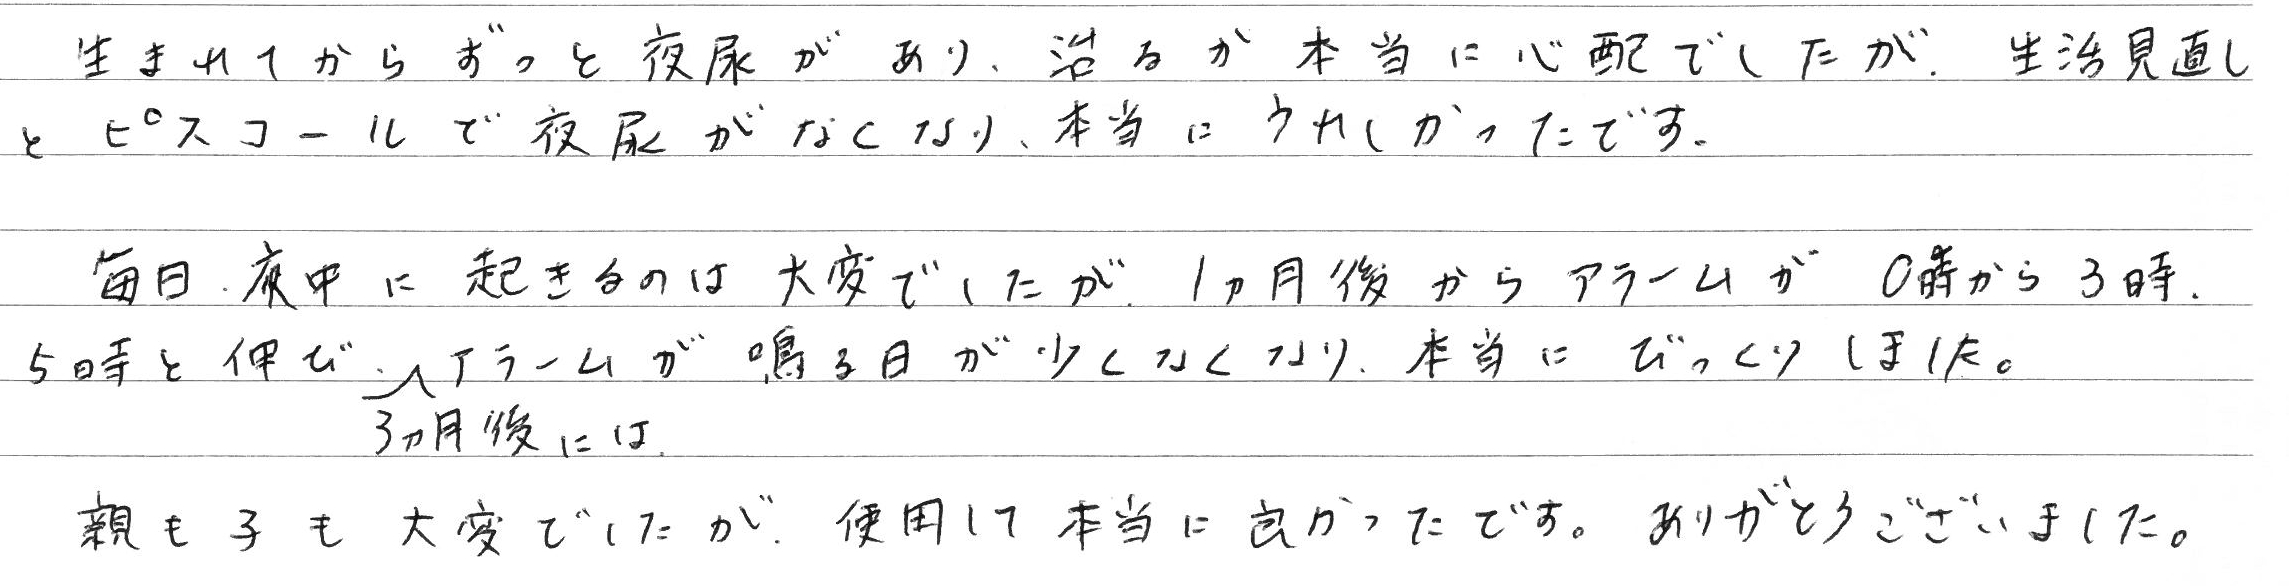 生まれてからずっと夜尿があり、治るか本当に心配でしたが、生活見直し
とピスコールで夜尿がなくなり、本当にうれしかったです。
毎日、夜中に起きるのは大変でしたが、1ヵ月後からアラームが0時から3時、
5時と伸び、アラームが鳴る日が少くなくなり、本当にびっくりしました。
3ヵ月後には、
親も子も大変でしたが、使用して本当に良かったです。ありがとうございました。